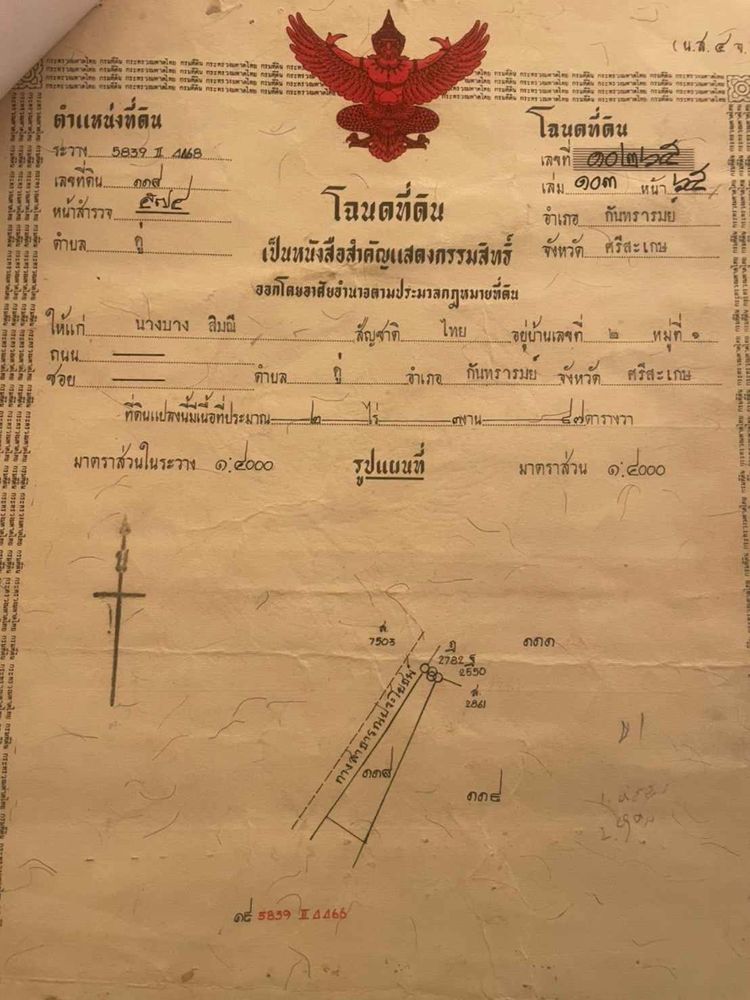 (น.ส. ๔ จ.
ตำแหน่งที่ดิน
ระวาง 5839 II 4468
เลขที่ดิน ๑๑๙
หน้าสำรวจ ๕๗๔
ตำบล คู
โฉนดที่ดิน
เลขที่ ๑๐๒๖๕
เล่ม ๑๐๓ หน้า ๖๕
อำเภอ กันทรารมย์
จังหวัด ศรีสะเกษ
โฉนดที่ดิน
เป็นหนังสือสำคัญแสดงกรรมสิทธิ์
ออกโดยอาศัยอำนาจตามประมวลกฎหมายที่ดิน
ให้แก่ นางบาง สิมณี สัญชาติ ไทย อยู่บ้านเลขที่ ๒ หมู่ที่ ๑
ถนน
ซอย ตำบล คู อำเภอ กันทรารมย์ จังหวัด ศรีสะเกษ
ที่ดินแปลงนี้มีเนื้อที่ประมาณ ๒ ไร่ ๓ งาน ๘๗ ตารางวา
มาตราส่วนในระวาง ๑:๔๐๐๐ รูปแผนที่ มาตราส่วน ๑:๔๐๐๐
น
ส
7503
ฎ
2782
ฐ
2550
ส
2861
๑๑๑
ทางสาธารณประโยชน์
๑๑๙
๑๑๘
5839 II 4466